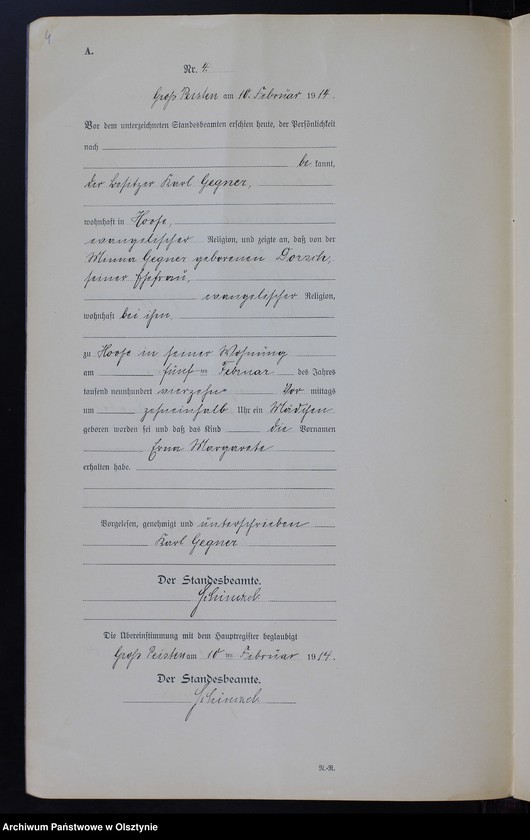 4
A.
Nr. 4.
Groß Peisten am 10. Februar 1914.
Vor dem unterzeichneten Standesbeamten erschien heute, der Persönlichkeit
nach
be kannt,
der Besitzer Karl Gegner,
wohnhaft in Hoofe,
evangelischer Religion, und zeigte an, daß von der
Minna Gegner geborenen Dorsch,
seiner Ehefrau,
evangelischer Religion,
wohnhaft bei ihm,
zu Hoofe in seiner Wohnung
am fünften Februar des Jahres
tausend neunhundert vierzehn Vor mittags
um zehneinhalb Uhr ein Mädchen
geboren worden sei und daß das Kind die Vornamen
Erna Margarete
erhalten habe.
Vorgelesen, genehmigt und unterschrieben
Karl Gegner
Der Standesbeamte.
Schimmel
Die Übereinstimmung mit dem Hauptregister beglaubigt
Groß Peisten am 10ten Februar 1914.
Der Standesbeamte.
Schimmel
N.-R.
Archiwum Państwowe w Olsztynie